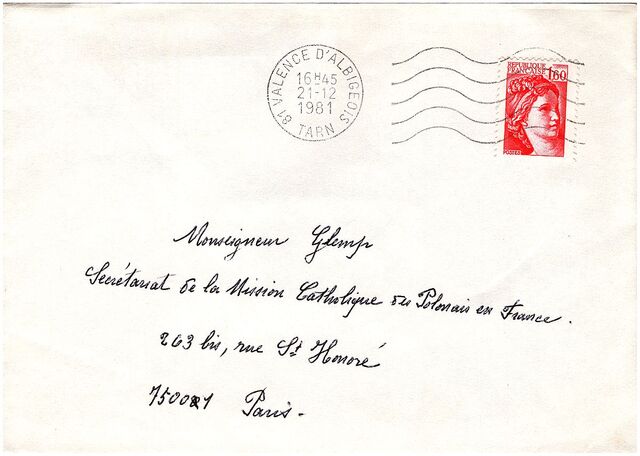 81 VALENCE D'ALBIGEOIS
16H45
21-12
1981
TARN
REPUBLIQUE
FRANÇAISE 1,60
POSTES
Monseigneur Glemp
Secrétariat de la Mission Catholique des Polonais en France.
263 bis, rue St Honoré
75001 Paris.